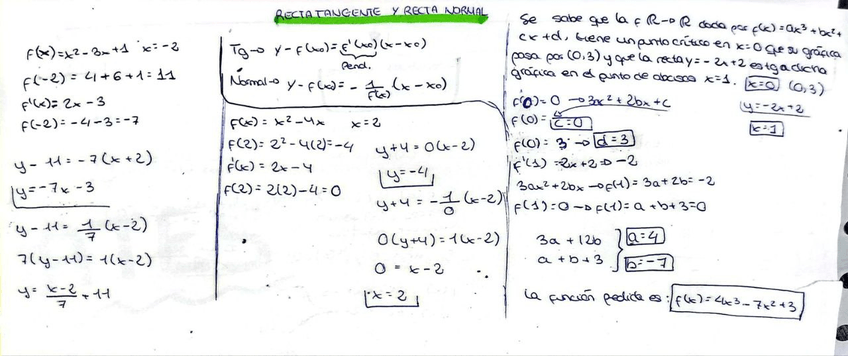 RECTA TANGENTE Y RECTA NORMAL
f(x)=x²-3x+1 x=-2
f(-2) = 4+6+1=11
f'(x)=2x-3
f(-2)=-4-3=-7
y-11=-7(x+2)
y=-7x-3
y-11=1/7(x-2)
7(y-11)=1(x-2)
y=x-2/7+11
Tg→ y-f(x0)=f'(x0)(x-x0)
Pend.
Normal→ y-f(x0)=-1/f'(x)(x-x0)
f(x)=x²-4x x=2
f(2)=2²-4(2)=-4
f'(x)=2x-4
f(2)=2(2)-4=0
y+4=0(x-2)
y=-4
y+4=-1/0(x-2)
0(y+4)=1(x-2)
0=x-2
x=2
Se sabe que la f R→R dada por f(x)=ax³+bx²+
cx+d, tiene un punto crítico en x=0 que su gráfica
pasa por (0,3) y que la recta y=-2x+2 es tga dicha
gráfica en el punto de abscisa x=1. x=0 (0,3)
f'(0)=0 →3ax²+2bx+c y=-2x+2
f(0)= c=0 x=1
f(0)=3 → d=3
f'(1)=2x+2=-2
3ax²+2bx→f(1)=3a+2b=-2
f(1)=0→f(1)=a+b+3=0
3a+12b a=4
a+b+3 b=-7
La función pedida es: f(x)=4x³-7x²+3